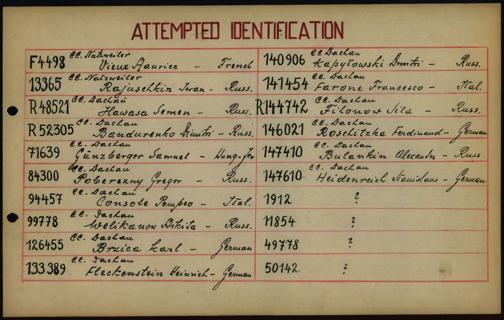 ATTEMPTED IDENTIFICATION
F4498 CC. Natzweiler
Vieux Maurice - French
13365 CC. Natzweiler
Rajuschkin Iwan - Russ.
R48521 CC. Dachau
Hawasa Semen - Russ.
R52305 CC. Dachau
Bandurenko Dimitri - Russ.
71639 CC. Dachau
Günzberger Samuel - Hung-Jew
84300 CC. Dachau
Poberezny Gregor - Russ.
94457 CC. Dachau
Console Pompeo - Ital.
99778 CC. Dachau
Welikanow Nikita - Russ.
126455 CC. Dachau
Brzica Karl - German
133389 CC. Dachau
Fleckenstein Heinrich - German
140906 CC. Dachau
Kapyłowski Dmitri - Russ.
141454 CC. Dachau
Farone Francesco - Ital.
R144742 CC. Dachau
Filonow Sila - Russ.
146021 CC. Dachau
Roschitzka Ferdinand - German
147410 CC. Dachau
Bulankin Alexander - Russ
147610 CC. Dachau
Heidenreich Stanislaus - German
1912 ?
11854 ?
49778 ?
50142 ?